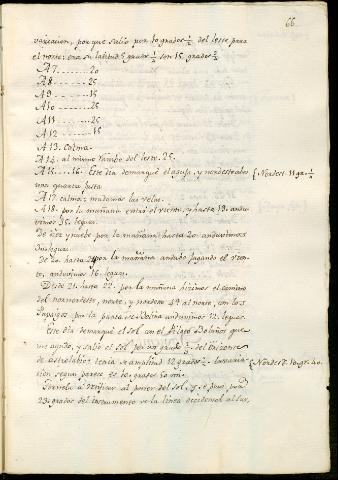 66
variacion, porque salio por 10 grados ½ del leste para
el norte: era su latitud 5 grados ½ son 15 grados ⅔
A 7........20
A 8........25
A 9........15
A 10.......25
A 11.......25
A 12.......15
A 13. Calma.
A 14. al mismo rumbo del leste. 25.
A 15.....16. Este dia demarqué el aguja, y nordesteaba (Nordest. 11 gr. ¼
una quarta justa
A 17. calma; mudamos las velas.
A 18. por la mañana entró el viento, y hasta 19. andu-
vimos 35. leguas.
De diez y nuebe por la mañana, hasta 20. anduvimos
leguas.
De 20. hasta 21. por la mañana andado jugando el vien-
to, anduvimos 16. leguas.
Desde 21. hasta 22. por la mañana hicimos el camino
del nornordeste, norte, y nordeste 4ª al norte, con los
por la punta de anduvimos 12. leguas.
Este dia demarqué el sol en el que
y salió el sol por 23. grados ½ del Orizonte
de astrolabio; tenia de amplitud 12 grados ½. la varia- (Nordest. 10. gr. 40.
cion segun parece es 10. grados 40. m.
Tornelo á verificar al poner del sol, y se puso, por
23. grados del instrumento de la linea occidental al sur,